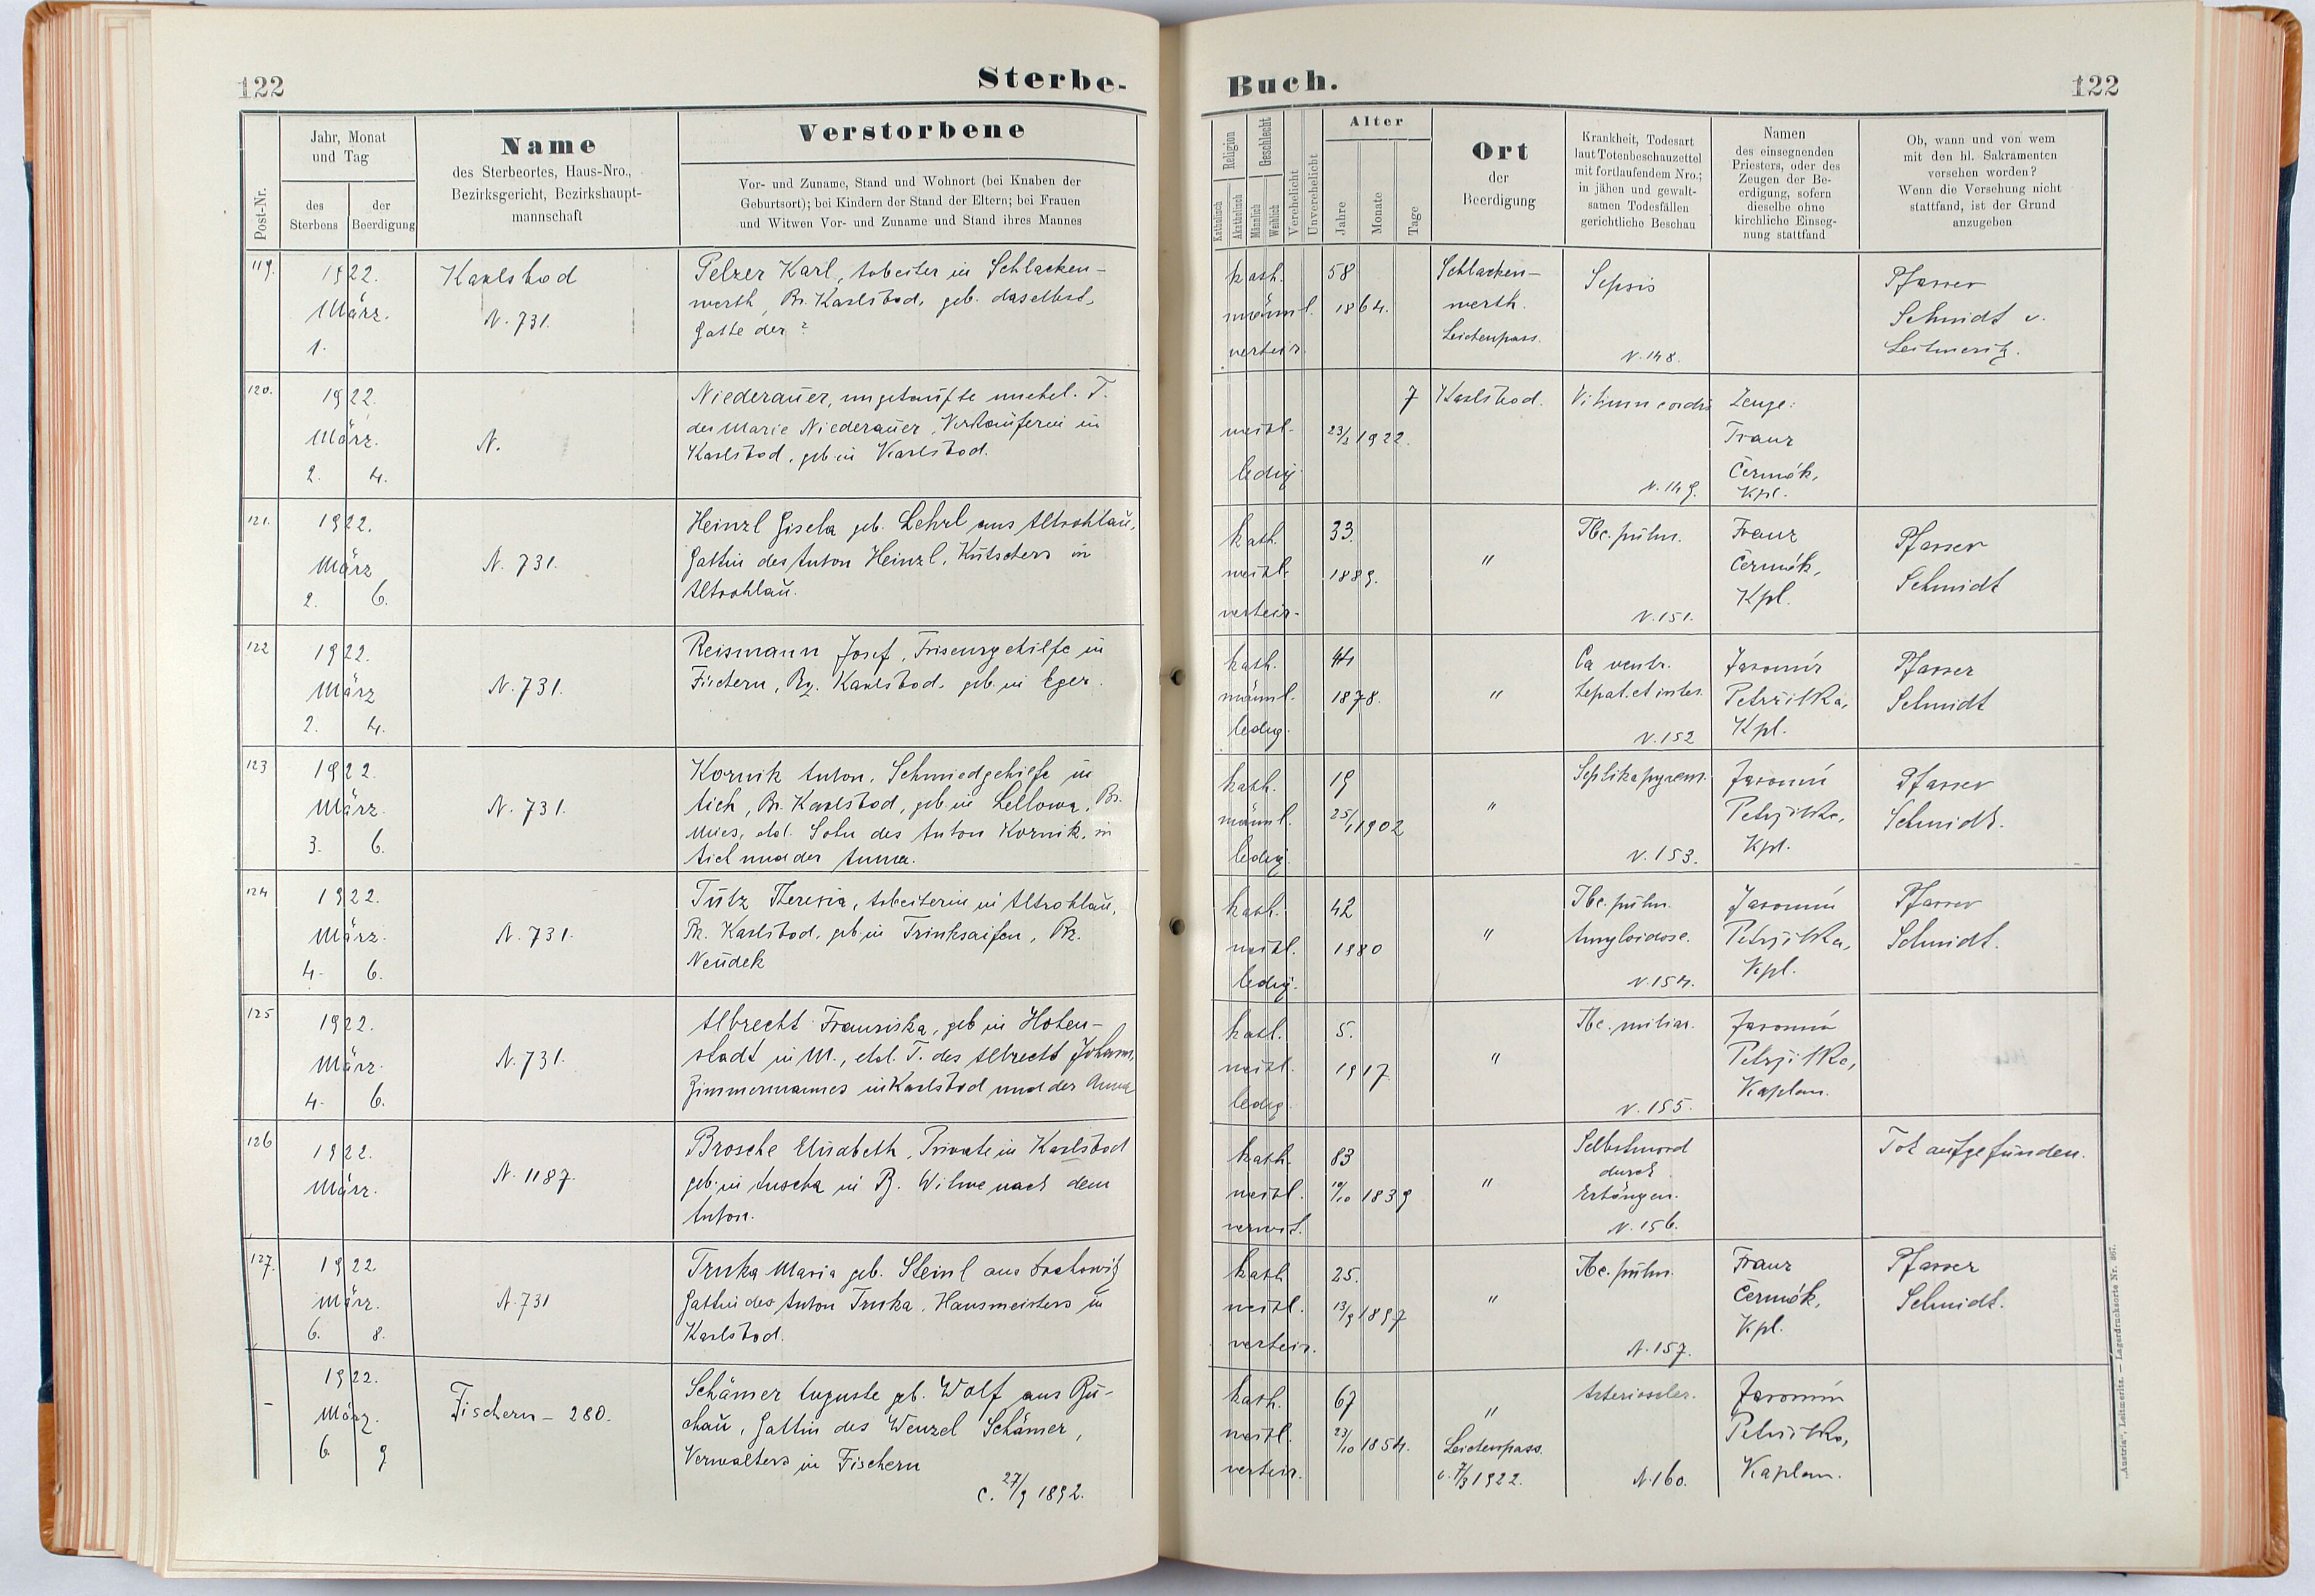 122
Sterbe-
Buch.
122
Post-Nr.
Jahr, Monat
und Tag
des
Sterbens
der
Beerdigung
Name
des Sterbeortes, Haus-Nro.,
Bezirksgericht, Bezirkshaupt-
mannschaft
Verstorbene
Vor- und Zuname, Stand und Wohnort (bei Knaben der
Geburtsort); bei Kindern der Stand der Eltern; bei Frauen
und Witwen Vor- und Zuname und Stand ihres Mannes
Religion
Katholisch
Akatholisch
Geschlecht
Männlich
Weiblich
Verehelicht
Unverehelicht
Alter
Jahre
Monate
Tage
Ort
der
Beerdigung
Krankheit, Todesart
laut Totenbeschauzettel
mit fortlaufendem Nro.;
in jähen und gewalt-
samen Todesfällen
gerichtliche Beschau
Namen
des einsegnenden
Priesters, oder des
Zeugen der Be-
erdigung, sofern
dieselbe ohne
kirchliche Einseg-
nung stattfand
Ob, wann und von wem
mit den hl. Sakramenten
versehen worden?
Wenn die Versehung nicht
stattfand, ist der Grund
anzugeben
119.
1922.
März.
1.
Karlsbad
N. 731.
Pelzer Karl, Arbeiter in Schlacken-
werth, Bz. Karlsbad, geb. daselbst,
Gatte der ?
kath.
männl.
verheir.
58
1864.
Schlacken-
werth.
Leichenpass.
Sepsis
N. 148.
Pfarrer
Schmidt v.
Leitmeritz.
120.
1922.
März.
2. 4.
N.
Niederauer, ungetaufte unehel. T.
der Marie Niederauer, Verkäuferin in
Karlsbad, geb in Karlsbad.
weibl.
ledig
7
23/2 1922.
Karlsbad.
Vitium cordis
N. 149.
Zeuge:
Franz
Čermák,
Kpl.
121.
1922.
März
2. 6.
N. 731.
Heinzl Gisela geb. Lehrl aus Altrohlau,
Gattin des Anton Heinzl, Kutschers in
Altrohlau.
kath.
weibl.
verheir.
33.
1889.
"
Tbc. pulm.
N. 151.
Franz
Čermák,
Kpl.
Pfarrer
Schmidt
122
1922.
März
2. 4.
N. 731.
Reismann Josef, Friseurgehilfe in
Fischern, Bz. Karlsbad, geb. in Eger.
kath.
männl.
ledig.
44
1878.
"
Ca ventr.
hepat. et intes.
N. 152
Jaromír
Petržilka,
Kpl.
Pfarrer
Schmidt
123
1922.
März.
3. 6.
N. 731.
Kornik Anton, Schmiedgehilfe in
Aich, Bz. Karlsbad, geb in Lellowa, Bz.
Mies, ehel. Sohn des Anton Kornik, in
Aich und der Anna.
kath.
männl.
ledig.
19
25/1 1902
"
N. 153.
Jaromír
Petržilka,
Kpl.
Pfarrer
Schmidt.
124
1922.
März.
4. 6.
N. 731.
Tutz Theresia, Arbeiterin in Altrohlau,
Bz. Karlsbad, geb in Trinksaifen, Bz.
Neudek
kath.
weibl.
ledig.
42
1880
"
Tbc. pulm.
Amyloidose.
N. 154.
Jaromír
Petržilka,
Kpl.
Pfarrer
Schmidt.
125
1922.
März.
4. 6.
N. 731.
Albrecht Franziska, geb in Hohen-
stadt in M., ehel. T. des Albrecht Johann,
Zimmermannes in Karlsbad und der Anna
kath.
weibl.
ledig.
5.
1917.
"
Tbc. miliar.
N. 155.
Jaromír
Petržilka,
Kaplan.
126
1922.
März.
N. 1187.
Brosche Elisabeth, Private in Karlsbad
geb. in Auscha in B. Witwe nach dem
Anton.
kath.
weibl.
verwit.
83
10/10 1839
"
Selbstmord
durch
Erhängen.
N. 156.
Tot aufgefunden.
127.
1922
März.
6. 8.
N. 731
Trnka Maria geb. Steinl aus
Gattin des Anton Trnka, Hausmeisters in
Karlsbad.
kath
weibl.
verheir.
25.
13/9 1897
"
Tbc. pulm.
N. 157.
Franz
Čermák,
Kpl.
Pfarrer
Schmidt.
-
1922.
März.
6. 9
Fischern - 280.
Schämer Auguste geb. Wolf aus Bu-
chau, Gattin des Wenzel Schämer,
Verwalters in Fischern
c. 27/9 1892.
kath.
weibl.
verheir.
67
23/10 1854.
"
Leichenpass.
v. 7/3 1922.
Arterioscler.
N. 160.
Jaromír
Petržilka,
Kaplan.
„Austria“, Leitmeritz. — Lagerdrucksorte Nr. 867.